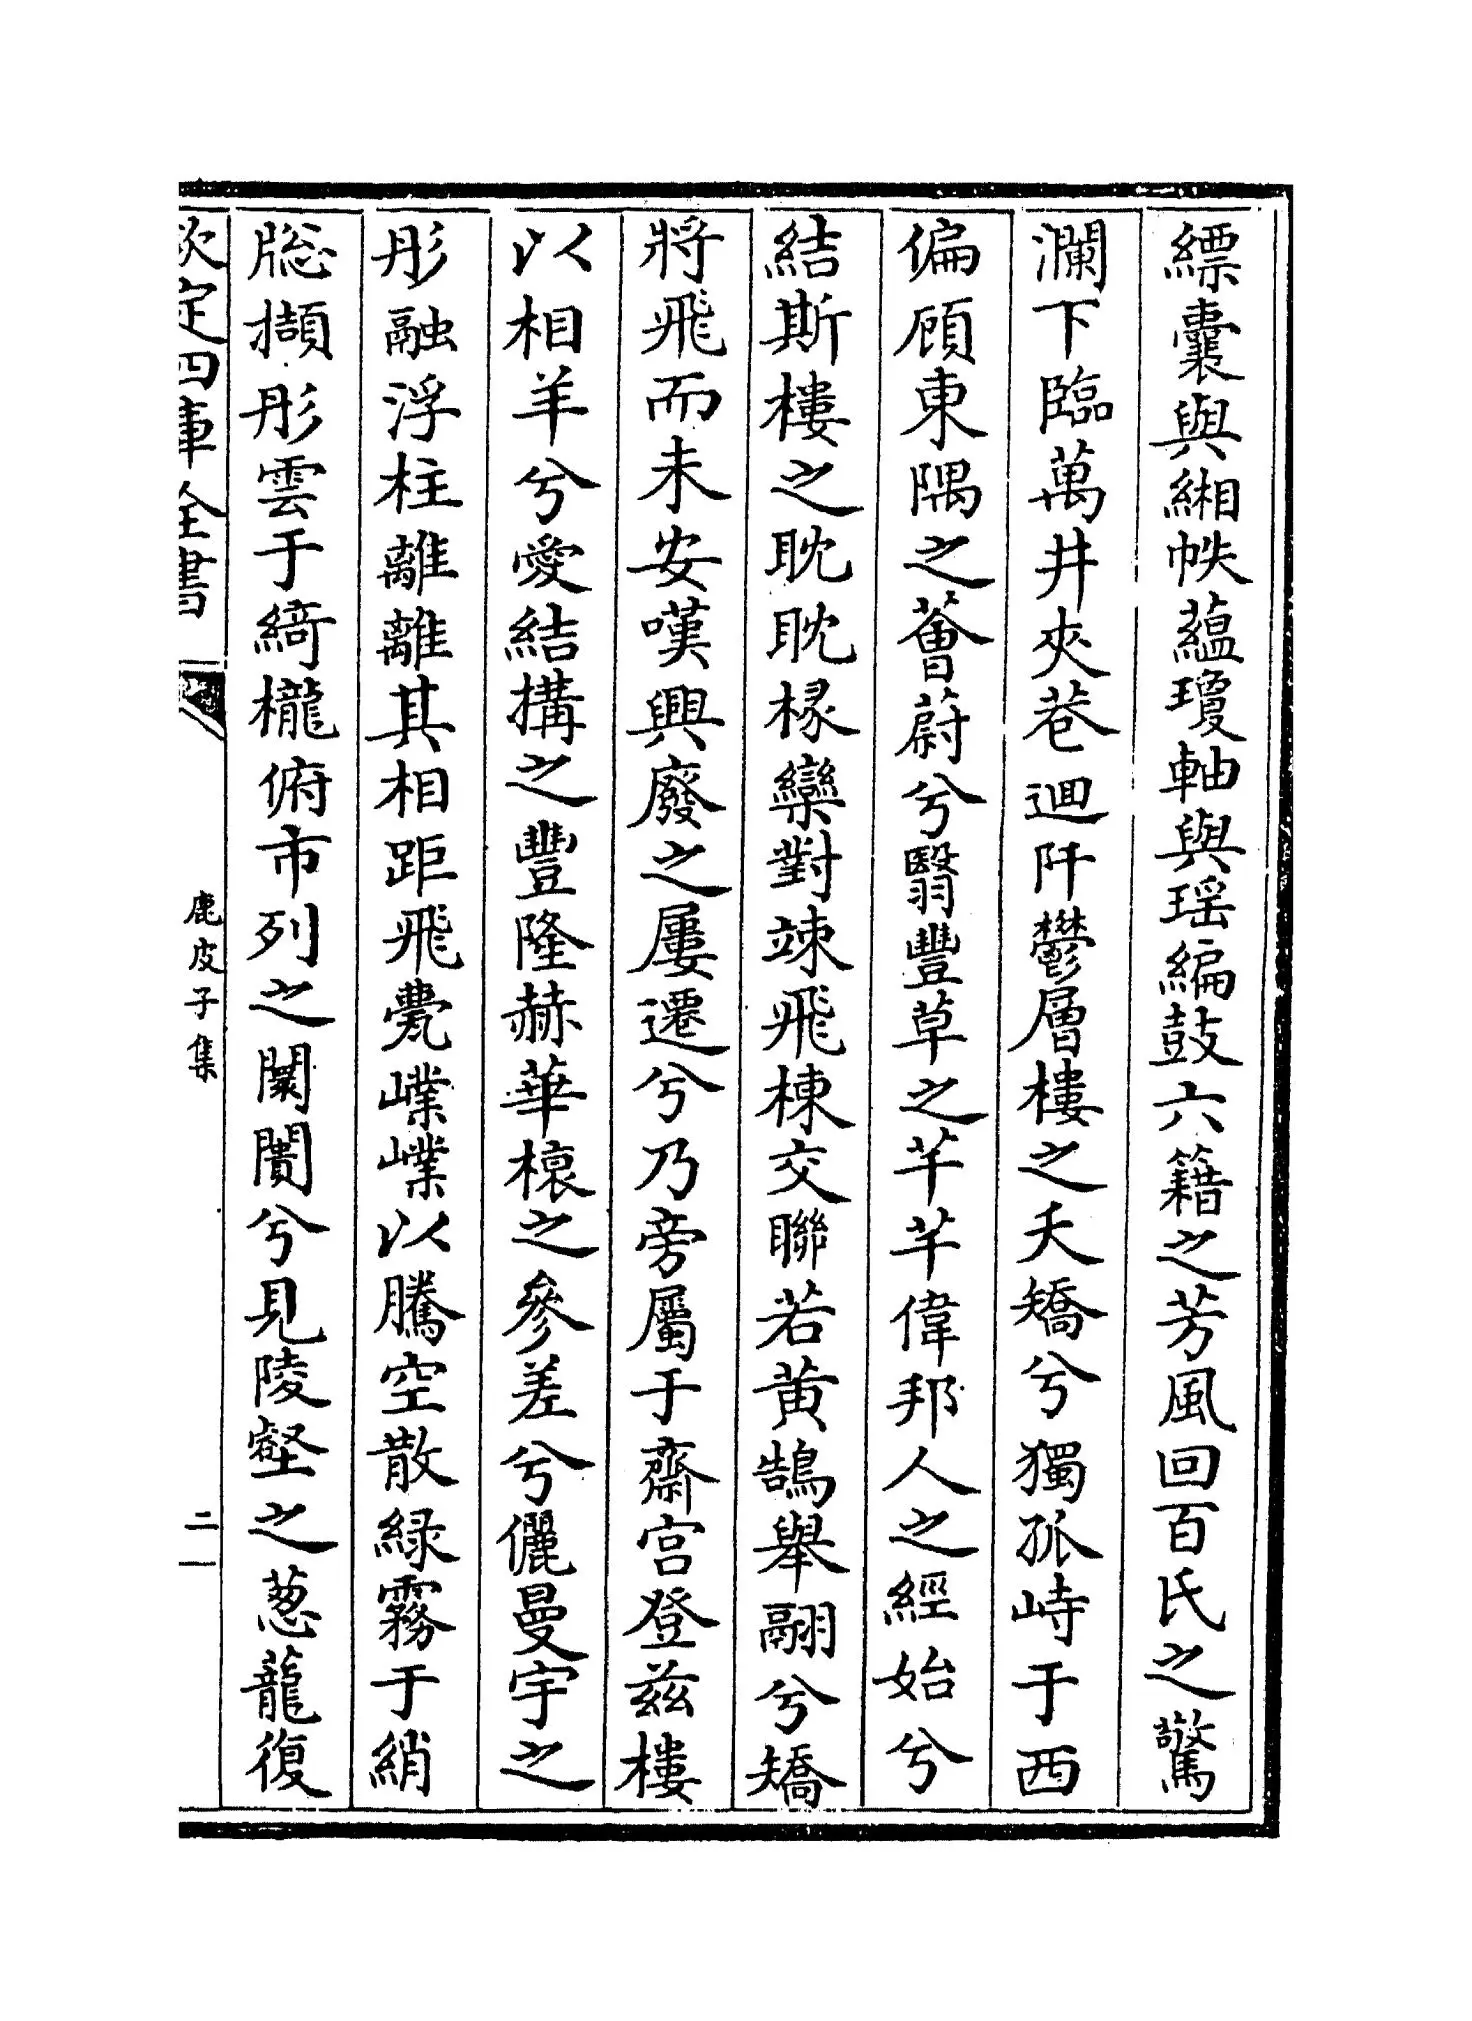 縹囊與緗帙蘊瓊軸與瑶編鼓六籍之芳風回百氏之驚
瀾下臨萬井夾巷迴阡鬱層樓之夭矯兮獨孤峙于西
偏顧東隅之薈蔚兮翳豐草之芊芊偉邦人之經始兮
結斯樓之耽耽椽欒對竦飛棟交聯若黄鵠舉翮兮矯
將飛而未安嘆興廢之屢遷兮乃旁屬于齋宫登兹樓
以相羊兮愛結構之豐隆赫華榱之參差兮儷曼宇之
彤融浮柱離離其相距飛甍嶫嶫以騰空散緑霧于綃
牕擷彤雲于綺櫳俯市列之闤闠兮見陵壑之葱蘢復
欽定四庫全書
鹿皮子集
二